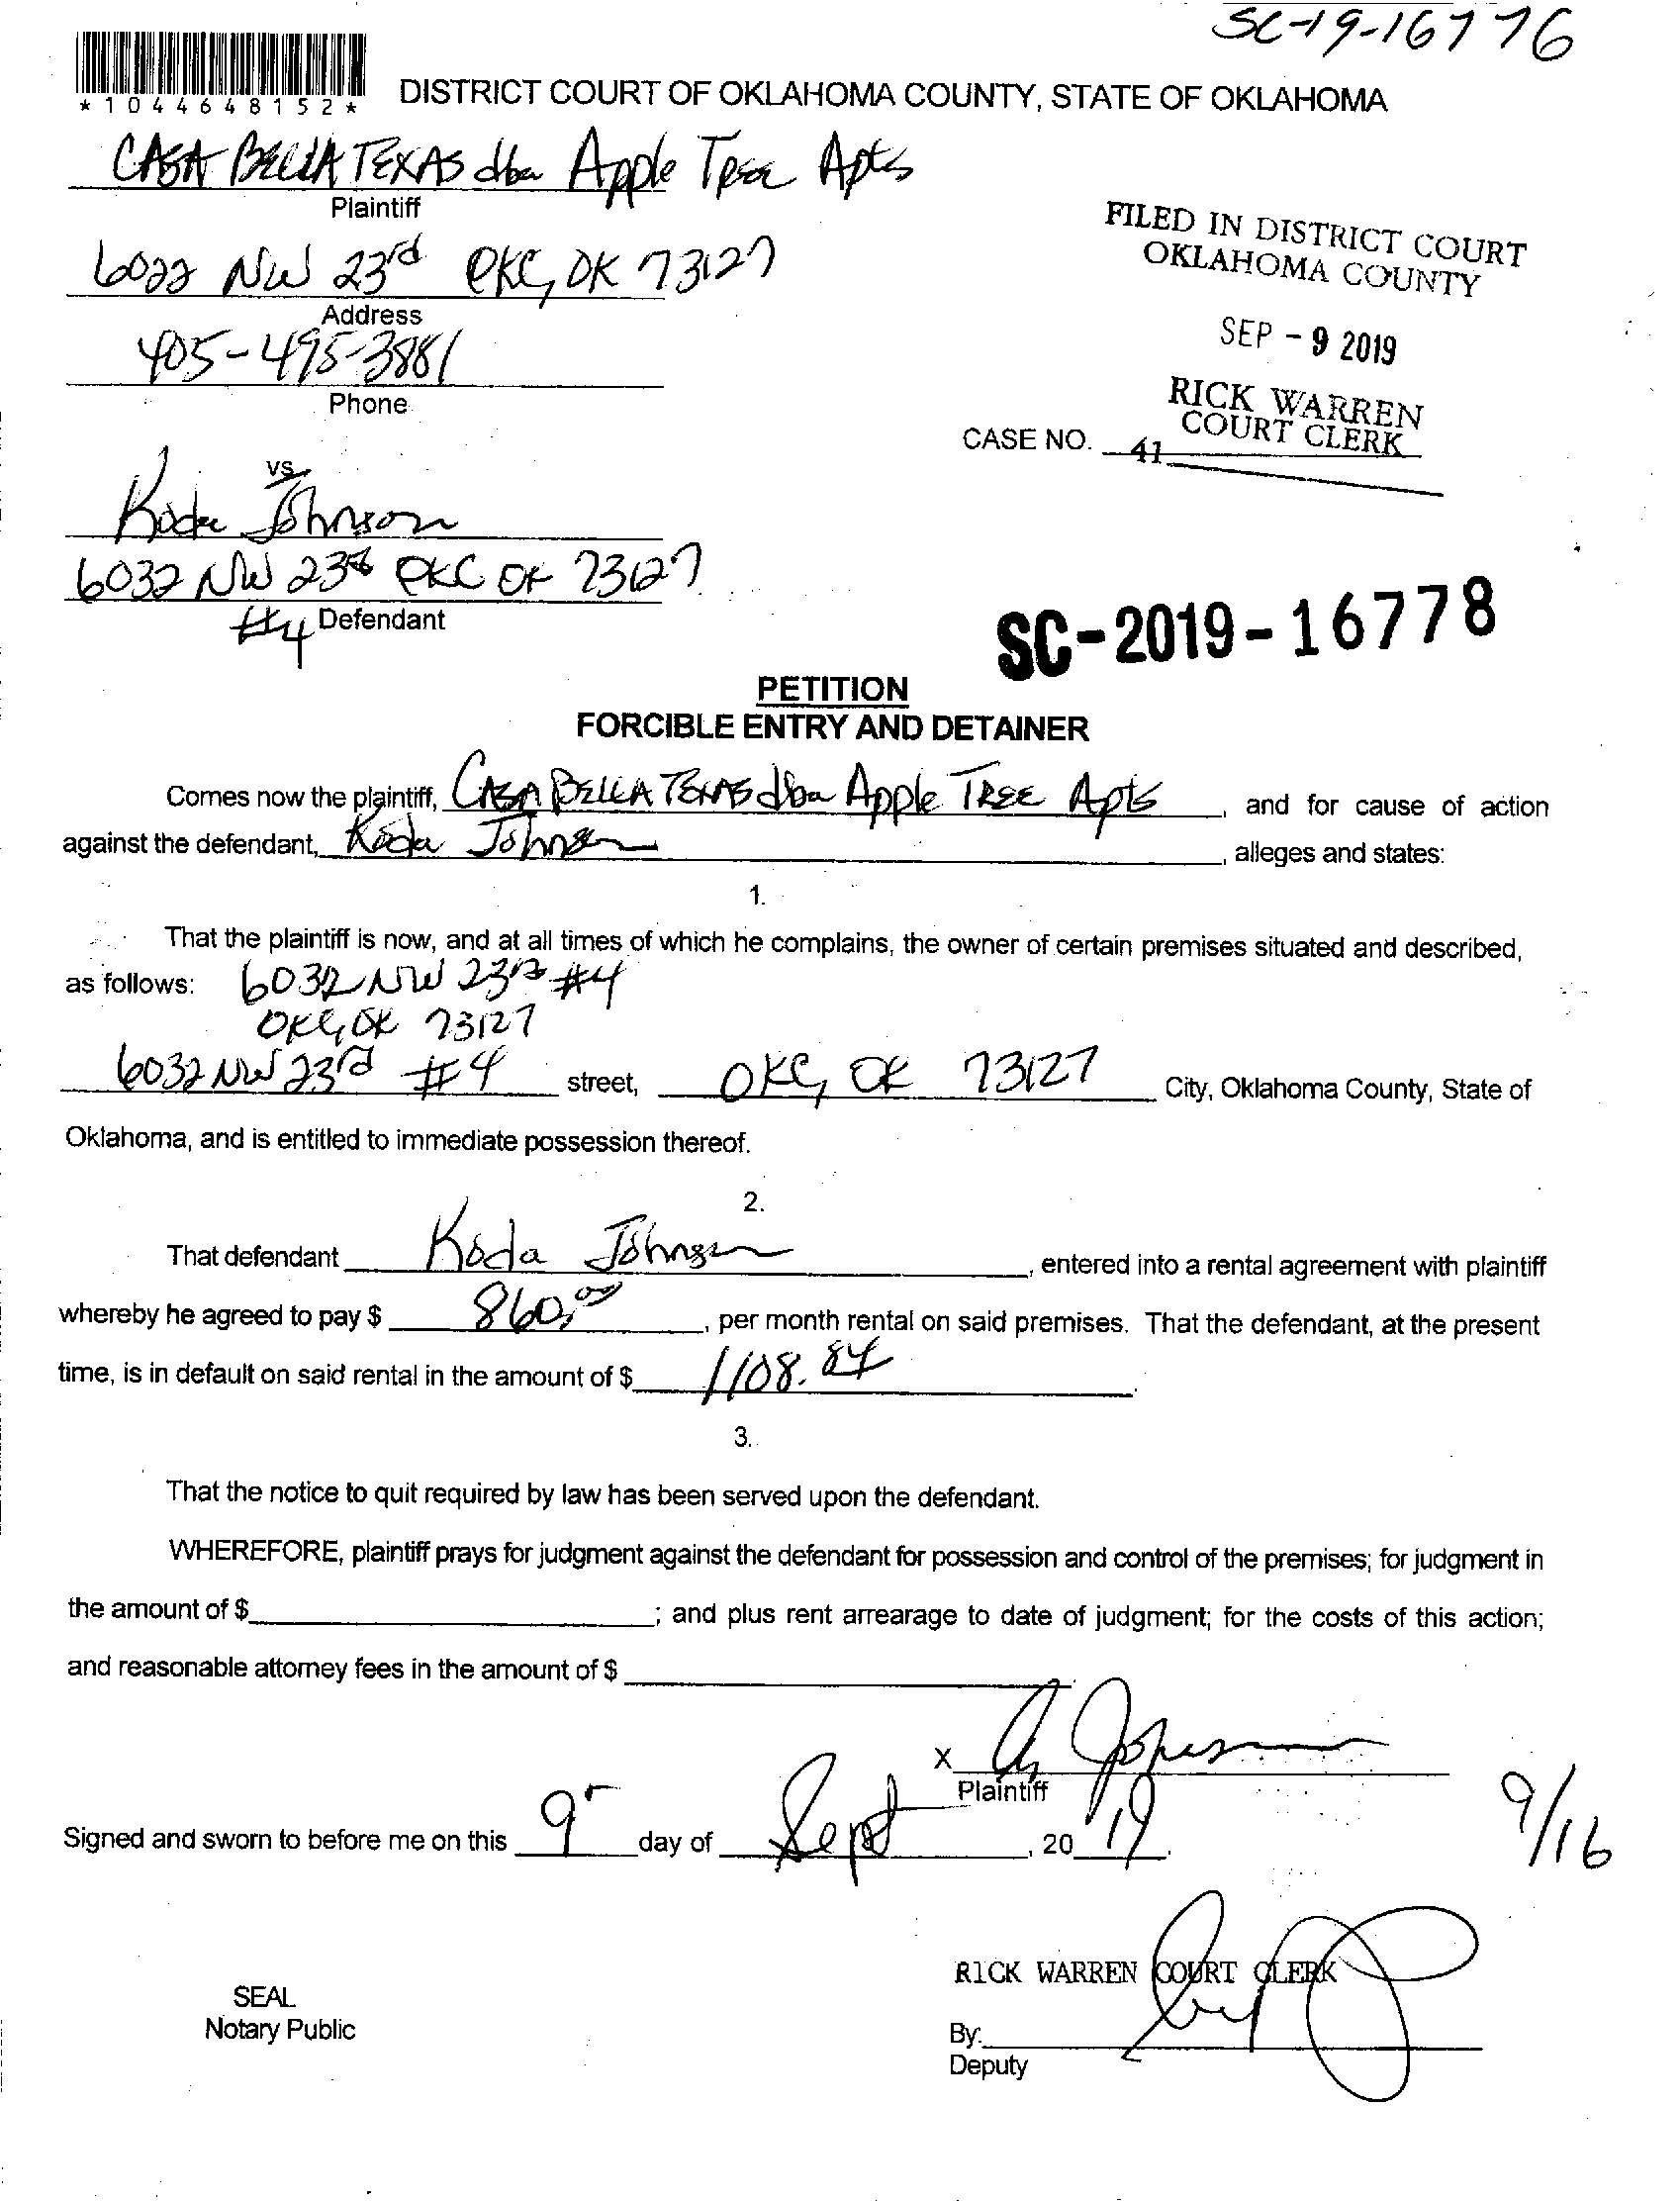 SC-19-16776
*1044648152*
DISTRICT COURT OF OKLAHOMA COUNTY, STATE OF OKLAHOMA
CASA BELLA TEXAS dba Apple Tree Apts
Plaintiff
6022 NW 23rd OKC, OK 73127
Address
405-495-3881
Phone
FILED IN DISTRICT COURT
OKLAHOMA COUNTY
SEP - 9 2019
RICK WARREN
COURT CLERK
CASE NO. 41
vs.
Koda Johnson
6032 NW 23rd OKC OK 73127
#4 Defendant
SC-2019-16778
PETITION
FORCIBLE ENTRY AND DETAINER
Comes now the plaintiff, CASA BELLA TEXAS dba Apple TREE Apts, and for cause of action
against the defendant, Koda Johnson, alleges and states:
1.
That the plaintiff is now, and at all times of which he complains, the owner of certain premises situated and described,
as follows: 6032 NW 23rd #4
OKC, OK 73127
6032 NW 23rd #4 street, OKC, OK 73127 City, Oklahoma County, State of
Oklahoma, and is entitled to immediate possession thereof.
2.
That defendant Koda Johnson, entered into a rental agreement with plaintiff
whereby he agreed to pay $ 860.00, per month rental on said premises. That the defendant, at the present
time, is in default on said rental in the amount of $ 1108.84.
3.
That the notice to quit required by law has been served upon the defendant.
WHEREFORE, plaintiff prays for judgment against the defendant for possession and control of the premises; for judgment in
the amount of $; and plus rent arrearage to date of judgment; for the costs of this action;
and reasonable attorney fees in the amount of $
X
Plaintiff
Signed and sworn to before me on this 9 day of Sept, 20 19.
9/16
RICK WARREN COURT CLERK
SEAL
Notary Public
By:
Deputy